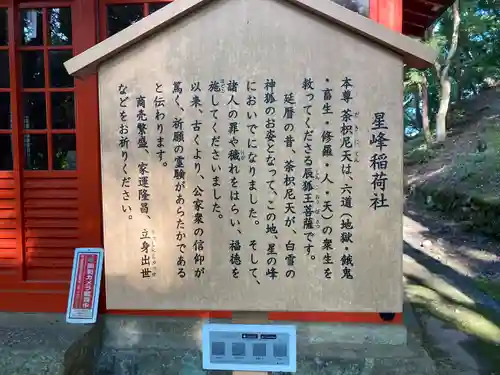 星峰稲荷社
本尊 茶枳尼天は、六道（地獄・餓鬼
・畜生・修羅・人・天）の衆生を
救ってくださる辰狐王菩薩です。
延暦の昔、茶枳尼天が、白雪の
神狐のお姿となって、この地、星の峰
においでになりました。そして、
諸人の罪や穢れをはらい、福徳を
施してくださいました。
以来、古くより、公家衆の信仰が
篤く、祈願の霊験があらたかである
と伝わります。
商売繁盛、家運隆昌、立身出世
などをお祈りください。
防犯カメラ稼働中